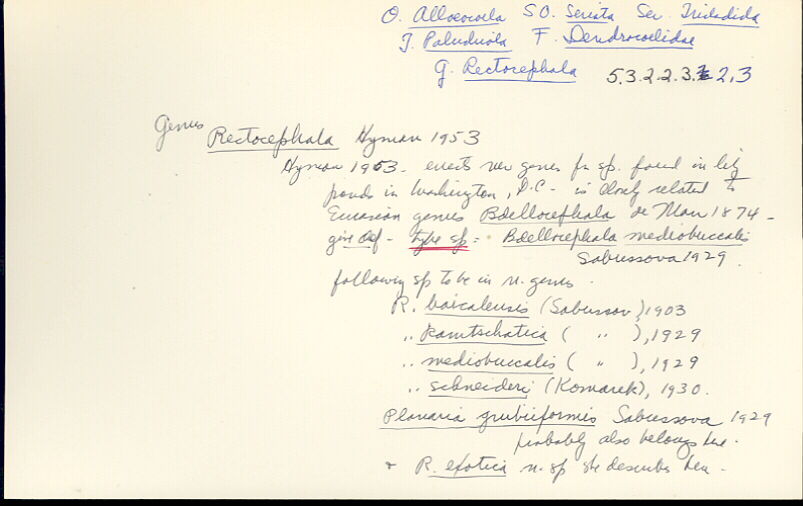 O. Alloeocoela SO. Seriata Sec. Tricladida
T. Paludicola F. Dendrocoelidae
G. Rectocephala 5.3.2.2.3.2,3
Genus
Rectocephala Hyman 1953
Hyman 1953 - erects new genus for sp. found in lily
ponds in Washington, D.C. - is closely related to
Eurasian genus Bdellocephala de Man 1874 -
give def - type sp: Bdellocephala mediobuccalis
Sabussova 1929.
following sp to be in n. genus.
R. baicalensis (Sabussov), 1903
" kamtschatica ( " ), 1929
" mediobuccalis ( " ), 1929
" schneideri (Komarek), 1930.
Planaria grubiiformis Sabussova 1929
probably also belongs here.
+ R. exotica n. sp she describes here.